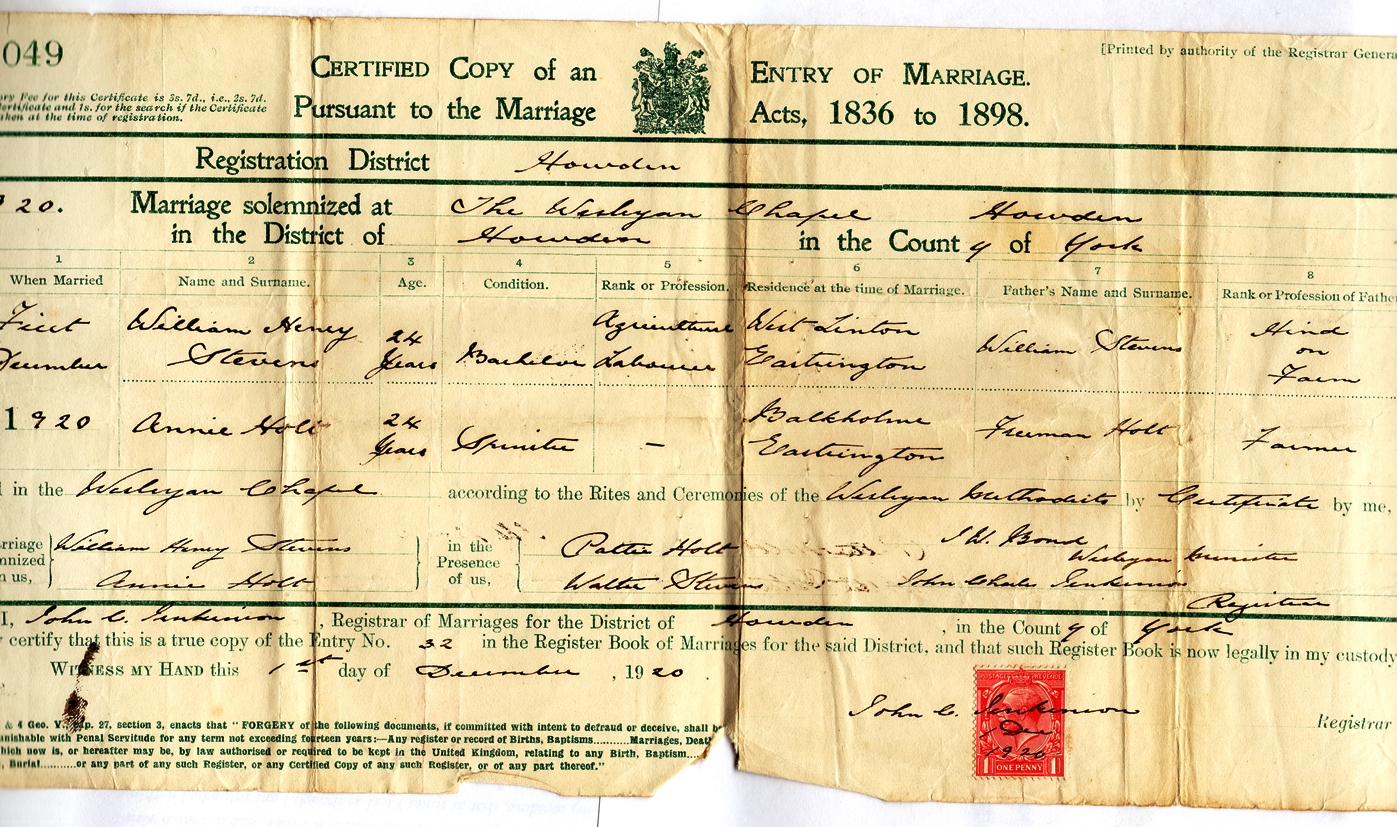 049
[Printed by authority of the Registrar Genera
CERTIFIED COPY of an ENTRY OF MARRIAGE.
Pursuant to the Marriage Acts, 1836 to 1898.
ry Fee for this Certificate is 3s. 7d., i.e., 2s. 7d.
ertificate and 1s. for the search if the Certificate
aken at the time of registration.
Registration District Howden
20. Marriage solemnized at The Wesleyan Chapel Howden
in the District of Howden in the County of York
1 2 3 4 5 6 7 8
When Married Name and Surname. Age. Condition. Rank or Profession. Residence at the time of Marriage. Father's Name and Surname. Rank or Profession of Father
First William Henry 24 Agricultural West Linton William Stevens Hind
December Stevens Years Bachelor Labourer Eastrington on
Farm
1920 Annie Holt 24 Spinster — Balkholme Freeman Holt Farmer
Years Eastrington
in the Wesleyan Chapel according to the Rites and Ceremonies of the Wesleyan Methodists by Certificate by me,
rriage William Henry Stevens in the Pattie Holt J.W. Bond
nnized Presence Wesleyan Minister
n us, Annie Holt of us, Walter Stevens John Charles Jenkinson
Registrar
I, John C. Jenkinson, Registrar of Marriages for the District of Howden, in the County of York
certify that this is a true copy of the Entry No. 32 in the Register Book of Marriages for the said District, and that such Register Book is now legally in my custody
WITNESS MY HAND this 1st day of December, 1920.
John C. Jenkinson Registrar
POSTAGE REVENUE
Dec
1920
1 ONE PENNY 1
& 4 Geo. V., cap. 27, section 3, enacts that "FORGERY of the following documents, if committed with intent to defraud or deceive, shall b
unishable with Penal Servitude for any term not exceeding fourteen years:—Any register or record of Births, Baptisms..........Marriages, Deat
hich now is, or hereafter may be, by law authorised or required to be kept in the United Kingdom, relating to any Birth, Baptism....
, Burial..........or any part of any such Register, or any Certified Copy of any such Register, or of any part thereof."